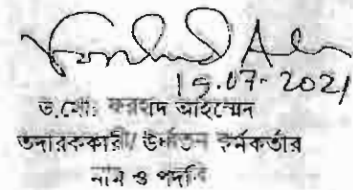 19.07-2021
ড.মোঃ ফরহাদ আহম্মেদ
তদারককারী/ উর্ধ্বতন কর্মকর্তার
নাম ও পদবি